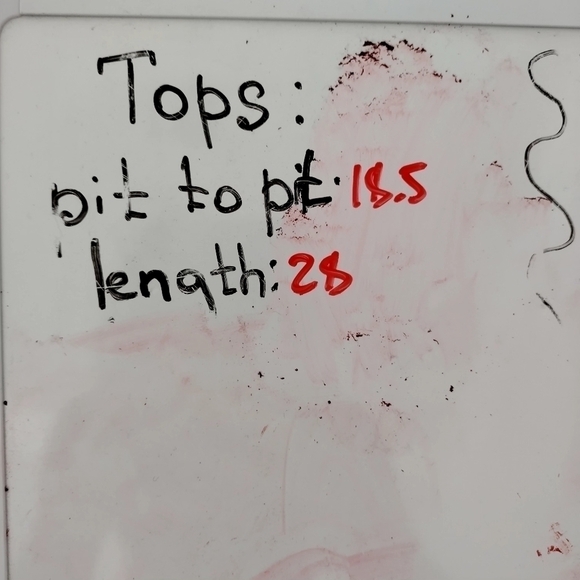 Tops:
pit to pit: 18.5
length: 28